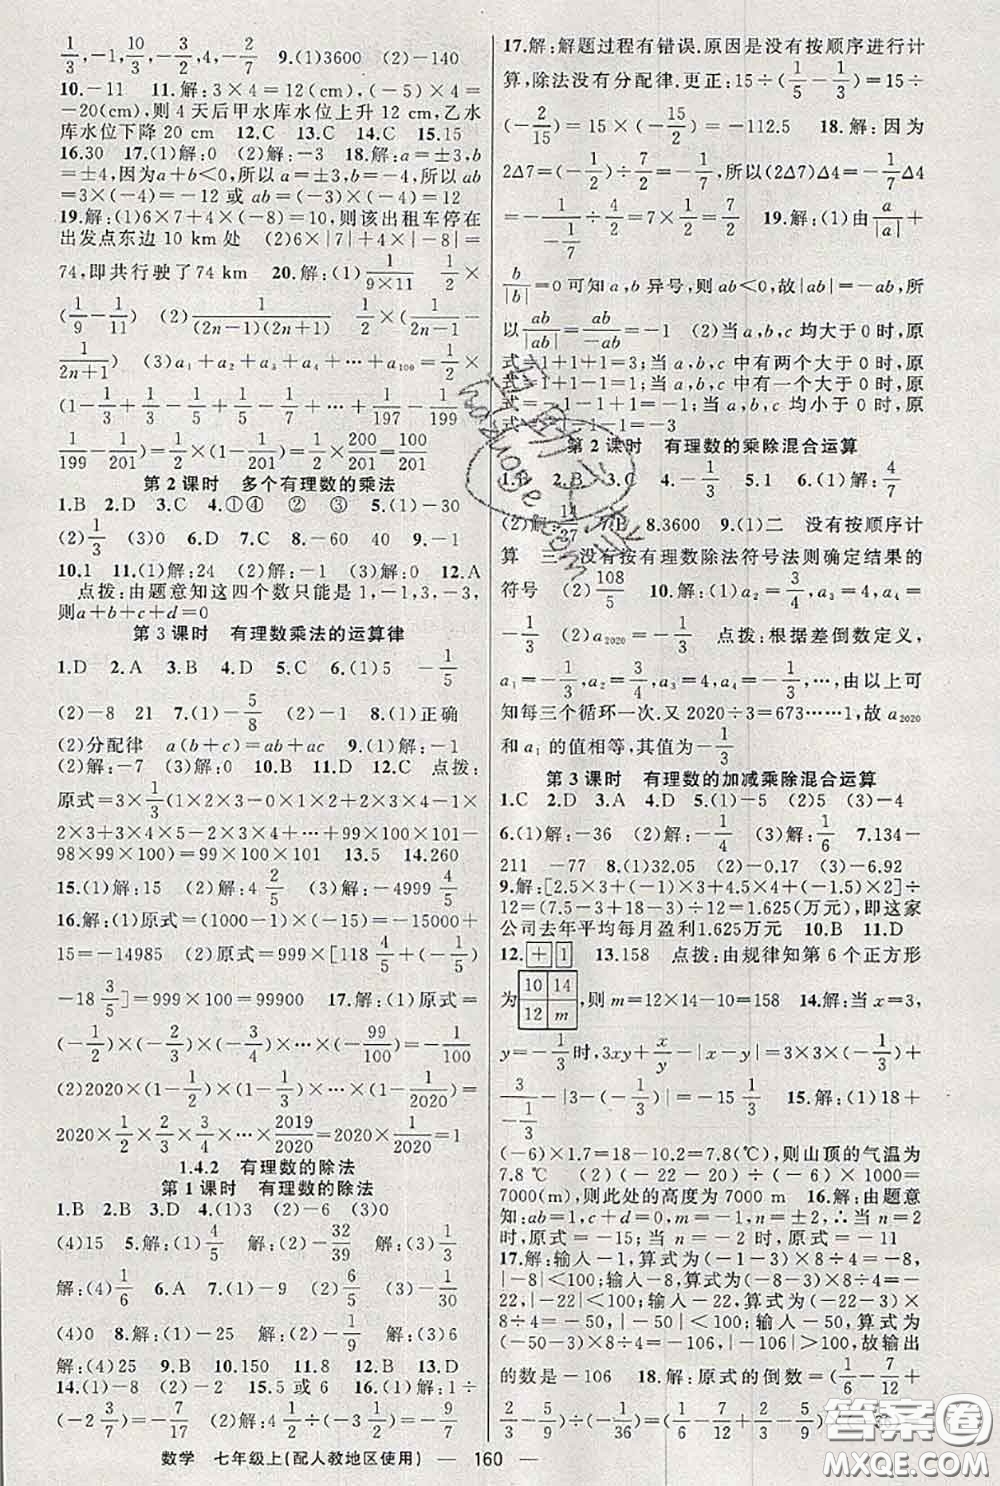 1/3,-1,10/3,-3/2,-2/3 9.(1)3600 (2)-140
10.-11 11.解:3×4=12(cm),(-5)×4=
-20(cm),则 4 天后甲水库水位上升 12 cm,乙水
库水位下降 20 cm 12.C 13.C 14.C 15.15
16.30 17.(1)解:0 (2)解:-3 18.解:a=±3,b
=±4,因为a+b<0,所以 a=±3,b=-4,所以
ab=3×(-4)=-12 或 ab=(-3)×(-4)=12
19.解:(1)6×7+4×(-8)=10,则该出租车停在
出发点东边 10 km 处 (2)6×|7|+4×|-8|=
74,即共行驶了74 km 20.解:(1)1/(9×11) 1/2×
(1/9-1/11) (2)1/((2n-1)(2n+1)) 1/2×(1/(2n-1)-
1/(2n+1)) (3)a₁+a₂+a₃+…+a₁₀₀=1/2×
(1-1/3+1/3-1/5+1/5-1/7+…+1/197-1/199+
1/199-1/201)=1/2×(1-1/201)=1/2×200/201=100/201
第 2 课时 多个有理数的乘法
1.B 2.D 3.C 4.①④ ② ③ 5.(1)-30
(2)1/3 (3)0 6.D 7.C 8.-60 40 9.-1
10.1 11.(1)解:24 (2)解:-1 (3)解:0 12.A
点拨:由题意知这四个数只能是 1,-1,3,-3,
则a+b+c+d=0
第 3 课时 有理数乘法的运算律
1.D 2.A 3.B 4.D 5.C 6.(1)5 -1/5
(2)-8 21 7.(1)-5/8 (2)-1 8.(1)正确
(2)分配律 a(b+c)=ab+ac 9.(1)解:-1
(2)解:-7 (3)解:0 10.B 11.D 12.C 点拨:
原式=3×1/3(1×2×3-0×1×2+2×3×4-1×
2×3+3×4×5-2×3×4+…+99×100×101-
98×99×100)=99×100×101 13.5 14.260
15.(1)解:15 (2)解:4 2/5 (3)解:-4999 4/5
16.解:(1)原式=(1000-1)×(-15)=-15000+
15=-14985 (2)原式=999×[118 4/5+(-1/5)
-18 3/5]=999×100=99900 17.解:(1)原式=
(-1/2)×(-2/3)×(-3/4)×…×(-99/100)=-1/100
(2)2020×(1-1/2)×(1-1/3)×…×(1-1/2020)=
2020×1/2×2/3×3/4×…×2019/2020=2020×1/2020=1
1.4.2 有理数的除法
第 1 课时 有理数的除法
1.B 2.B 3.D 4.(1)3 (2)-6 (3)0
(4)15 5.解:(1)4/5 (2)解:-32/39 (3)解:-1/3
解:(4)1/6 6.A 7.(1)-9 (2)1/6 (3)-1/30
(4)0 8.解:(1)-25 解:(2)-1/9 (3)0
解:(4)25 9.B 10.150 11.8 12.B 13.D
14.(1)-8 (2)-2 15.5 或 6 16.(1)解:1÷
(-2 3/7)=-7/17 (2)解:4 1/2÷(-3 1/2)=-9/7
17.解:解题过程有错误.原因是没有按顺序进行计
算,除法没有分配律.更正:15÷(1/5-1/3)=15÷
(-2/15)=15×(-15/2)=-112.5 18.解:因为
2Δ7=(-1/2)÷(-7/2)=1/7,所以(2Δ7)Δ4=-1/7Δ4
=-1/2÷4/(-1/7)=7×1/2=7/2 19.解:(1)由a/|a|+
b/|b|=0可知 a,b 异号,则 ab<0,故|ab|=-ab,所
以ab/|ab|=ab/-ab=-1 (2)当 a,b,c 均大于 0 时,原
式=1+1+1=3;当 a,b,c 中有两个大于 0 时,原
式=1+1-1=1;当 a,b,c 中有一个大于 0 时,原
式=-1-1+1=-1;当 a,b,c 均小于 0 时,原
式 -1-1=-3
第 2 课时 有理数的乘除混合运算
2.B 3.C 4.-1/3 5.1 6.(1)解:4/7
(2)解:14/27 8.3600 9.(1)二 没有按顺序计
算 三 没有按有理数除法符号法则确定结果的
符号 (2)108/5 10.解:(1)a₂=3/4,a₃=4,a₄=
-1/3 (2)a₂₀₂₀=-1/3 点拨:根据差倒数定义,
a₁=-1/3,a₂=3/4,a₃=4,a₄=-1/3,…,由以上可
知每三个循环一次.又 2020÷3=673……1,故 a₂₀₂₀
和 a₁ 的值相等,其值为-1/3
第 3 课时 有理数的加减乘除混合运算
1.C 2.D 3.A 4.D 5.(1)-5 (2)5 (3)-4
6.(1)解:-36 (2)解:-1/4 (3)解:1/6 7.134-
211 -77 8.(1)32.05 (2)-0.17 (3)-6.92
9.解:[2.5×3+(-1)×3+4.5×4+(-1.5)×2]÷
12=(7.5-3+18-3)÷12=1.625(万元),即这家
公司去年平均每月盈利1.625万元 10.B 11.D
12.+ 1 13.158 点拨:由规律知第 6 个正方形
为 10 14 12 m,则 m=12×14-10=158 14.解:当 x=3,
y=-1/3时,3xy+x/y-|x-y|=3×3×(-1/3)+
3/(-1/3)-|3-(-1/3)|=-3-9-10/3=-46/3 15.解:(1)18+
(-6)×1.7=18-10.2=7.8(℃),则山顶的气温为
7.8℃ (2)(-22-20)÷(-6)×1000=
7000(m),则此处的高度为 7000 m 16.解:由题意
知:ab=1,c+d=0,m=-1,n=±2,∴当 n=2
时,原式=-15;当 n=-2 时,原式=-11
17.解:输入-1,算式为(-1-3)×8÷4=-8,
|-8|<100;输入-8,算式为(-8-3)×8÷4=-
22,|-22|<100;输入-22,算式为(-22-3)×
8÷4=-50,|-50|<100;输入-50,算式为
(-50-3)×8÷4=-106,|-106|>100,故输出
的数是-106 18.解:原式的倒数=(1/6-7/12+
数学 七年级上(配人教地区使用) — 160 —
答案圈